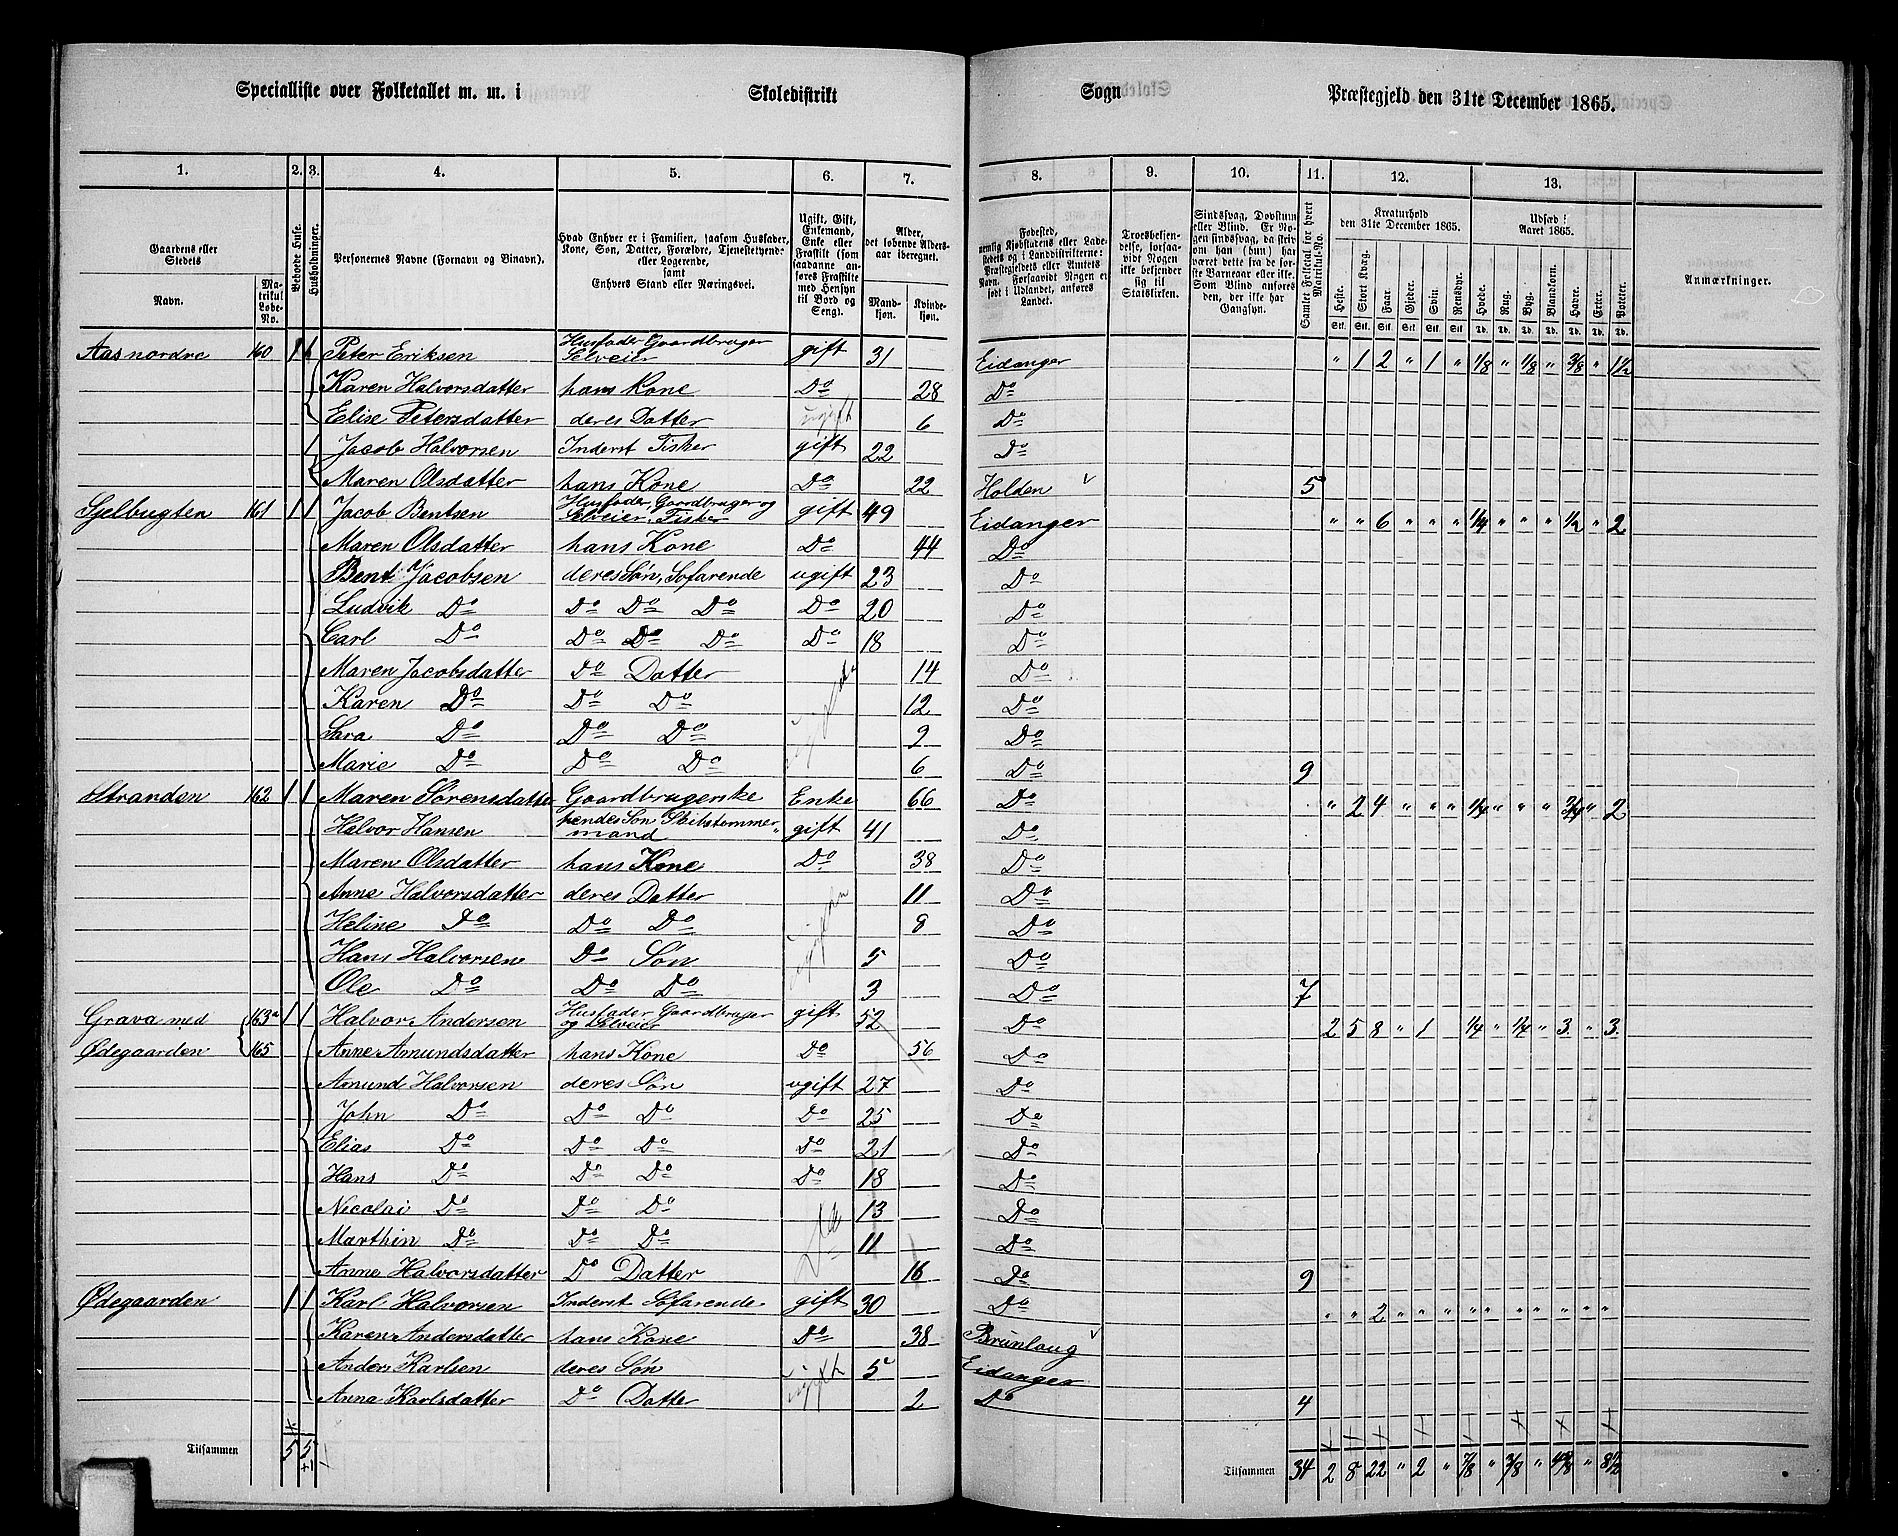 Specialliste over Folketallet m. m. i Skoledistrikt Sogn Præstegjeld den 31te December 1865.
1. 2. 3. 4. 5. 6. 7. 8. 9. 10. 11. 12. 13.
Gaardens eller Stedets Navn. Matrikul Løbe-No. Beboede Huse. Husholdninger. Personernes Navne (Fornavn og Binavn). Hvad Enhver er i Familien, saasom Husfader, Kone, Søn, Datter, Forældre, Tjenestetyende eller Logerende, samt Enhvers Stand eller Næringsvei. Ugift, Gift, Enkemand, Enke eller Fraskilt (som saadanne anføres Fraskilte med Hensyn til Bord og Seng). Alder, det løbende Alders-aar iberegnet. Mandkjøn. Kvindekjøn.
Fødested, nemlig Kjøbstadens eller Ladestedets og i Landdistrikterne: Præstegjeldets eller Amtets Navn. Forsaavidt Nogen er født i Udlandet, anføres Landet. Troesbekjendelse, forsaavidt Nogen ikke bekjender sig til Statskirken. Sindssvag, Døvstum eller Blind. Er Nogen sindssvag, da skrives om han (hun) har været dette fra de første Barneaar eller ikke. Som Blind anføres den, der ikke har Gangsyn. Samlet Folketal for hvert Matrikul-No. Kreaturhold den 31te December 1865. Udsæd i Aaret 1865. Anmærkninger.
Heste. Stort Kvæg. Faar. Gjeder. Svin. Rensdyr. Hvede. Rug. Byg. Blandkorn. Havre. Erter. Poteter.
Stk. Stk. Stk. Stk. Stk. Stk. Td. Td. Td. Td. Td. Td. Td.
Aas nordre 160 1 1 Peter Eriksen Husfader Gaardbruger Selveier gift 31 Eidanger " 1 2 " 1 " 1/8 " 1/8 " 3/8 " 1 1/2
Karen Halvorsdatter hans Kone Do 28 Do
Elise Petersdatter deres Datter ugift 6 Do
Jacob Halvorsen Inderst Fisker gift 22 Do
Maren Olsdatter hans Kone Do 22 Holden v 5
Sjelbugten 161 1 1 Jacob Bentsen Husfader, Gaardbruger og Selveier, Fisker gift 49 Eidanger " " 6 " " " 1/4 " " " 1/2 " 2
Maren Olsdatter hans Kone Do 44 Do
Bent Jacobsen deres Søn, Søfarende ugift 23 Do
Ludvik Do Do Do Do Do 20 Do
Carl Do Do Do Do Do 18 Do
Maren Jacobsdatter Do Datter 14 Do
Karen Do Do Do 12 Do
Sara Do Do Do 9 Do
Marie Do Do Do 6 Do 9
Stranden 162 1 1 Maren Sørensdatter Gaardbrugerske Enke 66 Do " 2 4 " " " 1/4 " " " 3/4 " 2
Halvor Hansen hendes Søn Skibstømmermand gift 41 Do
Maren Olsdatter hans Kone Do 38 Do
Anne Halvorsdatter deres Datter 11 Do
Heline Do Do Do 8 Do
Hans Halvorsen Do Søn 5 Do
Ole Do Do Do 3 Do 7
Grava med 163a 1 1 Halvor Andersen Husfader Gaardbruger og Selveier gift 52 Do 2 5 8 " 1 1/4 " 1/4 " 3 " 3
Ødegaarden 165 Anne Amundsdatter hans Kone Do 56 Do
Amund Halvorsen deres Søn ugift 27 Do
John Do Do Do Do 25 Do
Elias Do Do Do Do 21 Do
Hans Do Do Do Do 18 Do
Nicolai Do Do Do 13 Do
Marthin Do Do Do 11 Do
Anne Halvorsdatter Do Datter 16 Do 9
Ødegaarden 1 1 Karl Halvorsen Inderst Søfarende gift 30 Do " " 2 " " " " " " " " " "
Karen Andersdatter hans Kone Do 38 Brunlaug v
Anders Karlsen deres Søn ugift 5 Eidanger
Anna Karlsdatter Do Datter 2 Do 4
Tilsammen 5 5 Tilsammen 34 2 8 22 " 2 " 7/8 " 3/8 " " 8 1/2